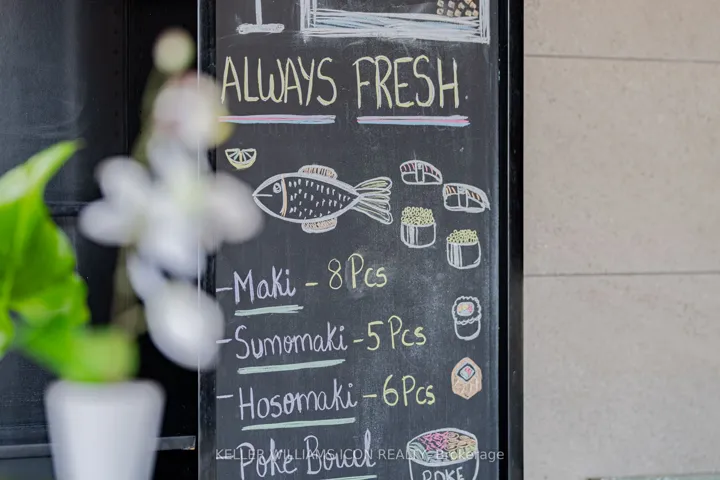 ALWAYS FRESH
-Maki - 8Pcs
-Sumomaki -5Pcs
-Hosomaki -6Pcs
-Poke Bowl
POKE
KELLER WILLIAMS ICON REALTY, Brokerage